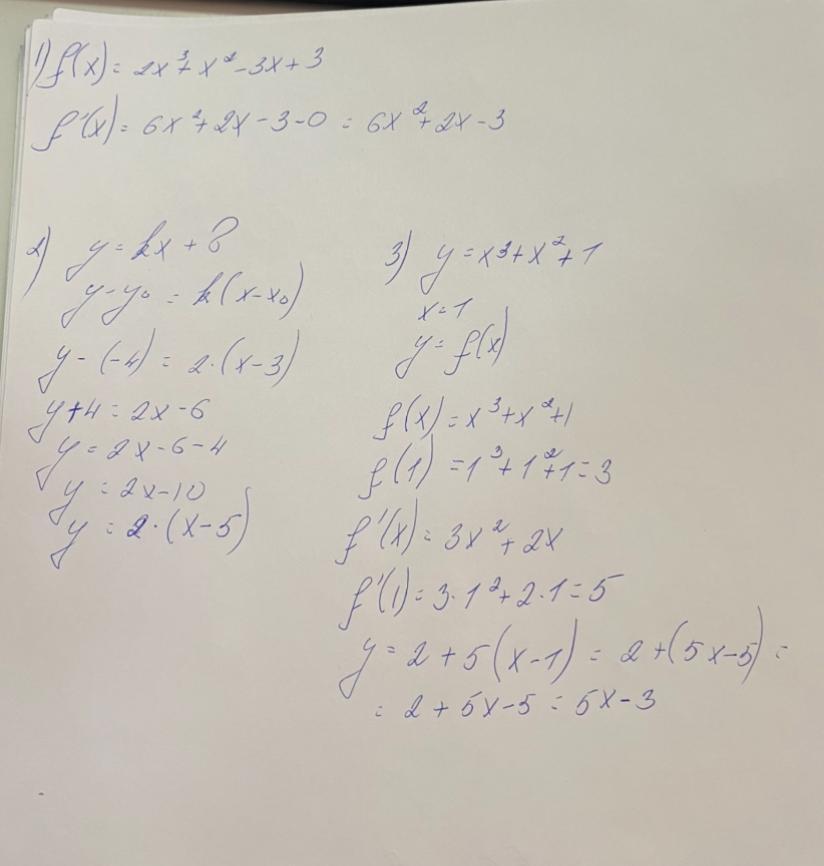 1) f(x) = 2x³ + x² - 3x + 3
f'(x) = 6x² + 2x - 3 - 0 = 6x² + 2x - 3
2) y = kx + b
y - y₀ = k(x - x₀)
y - (-4) = 2·(x - 3)
y + 4 = 2x - 6
y = 2x - 6 - 4
y = 2x - 10
y = 2·(x - 5)
3) y = x³ + x² + 1
x = 1
y = f(x)
f(x) = x³ + x² + 1
f(1) = 1³ + 1² + 1 = 3
f'(x) = 3x² + 2x
f'(1) = 3·1² + 2·1 = 5
y = 2 + 5(x - 1) = 2 + (5x - 5) =
= 2 + 5x - 5 = 5x - 3